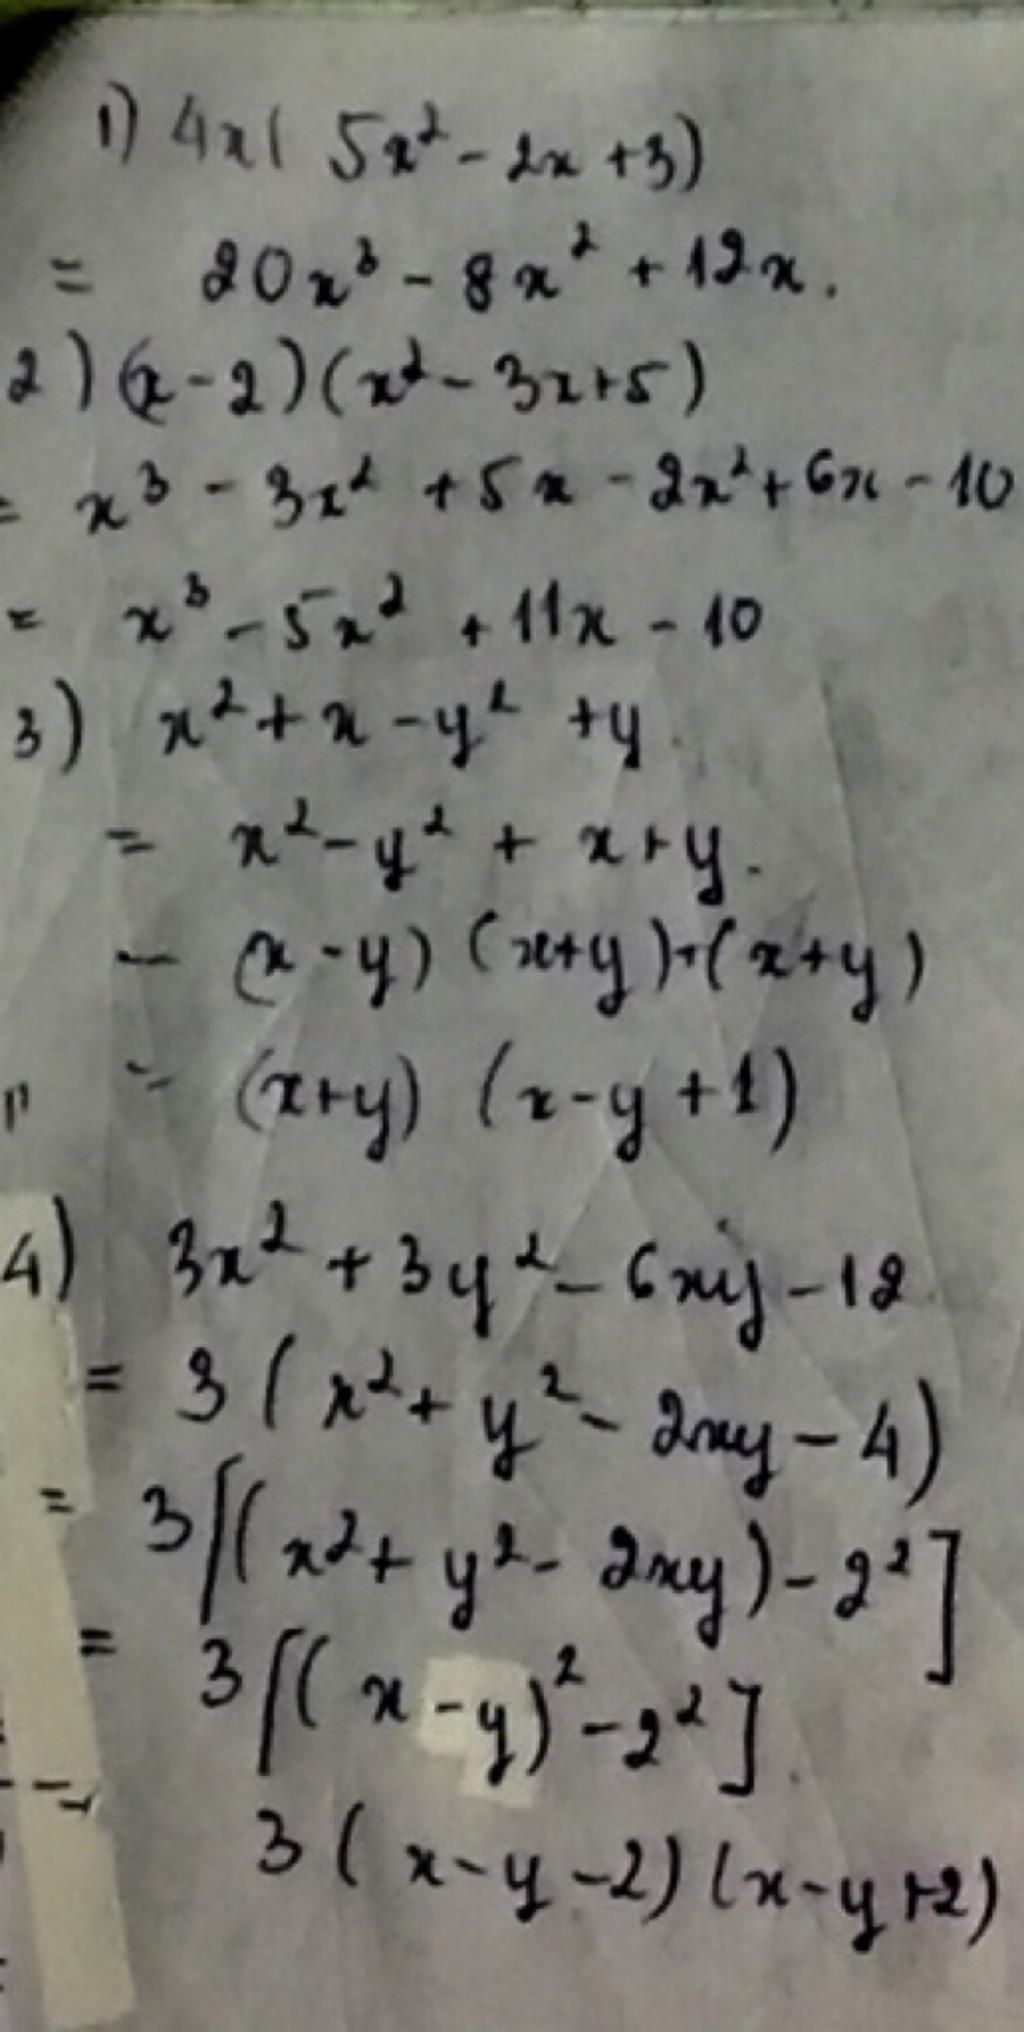 1) 4x( 5x² - 2x + 3)
= 20x³ - 8x² + 12x.
2) (x - 2)(x² - 3x + 5)
= x³ - 3x² + 5x - 2x² + 6x - 10
= x³ - 5x² + 11x - 10
3) x² + x - y² + y
= x² - y² + x + y.
= (x - y) (x + y) + (x + y)
= (x + y) (x - y + 1)
4) 3x² + 3y² - 6xy - 12
= 3 ( x² + y² - 2xy - 4)
= 3 [( x² + y² - 2xy) - 2²]
= 3 [( x - y)² - 2²]
= 3 ( x - y - 2) (x - y + 2)